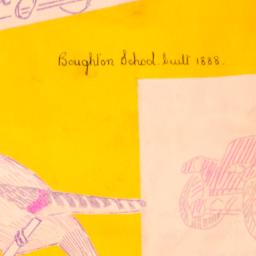 Boughton School built 1888.